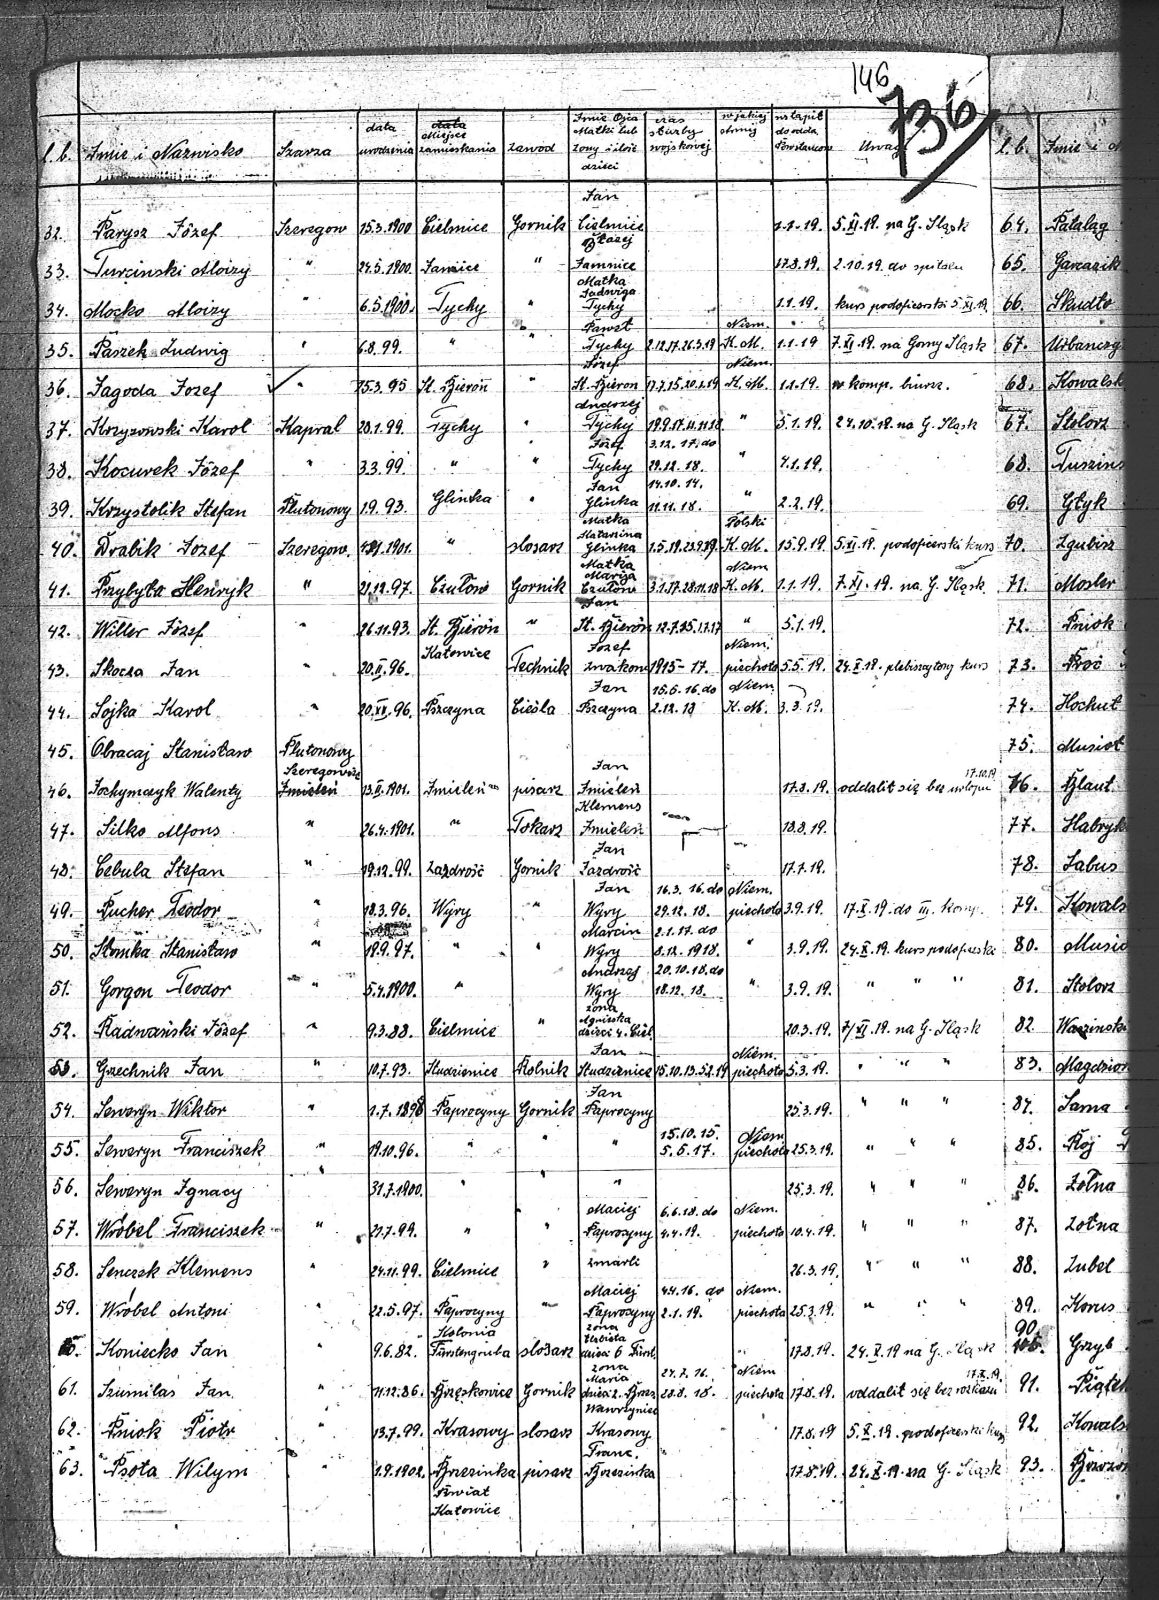 146
736
l.b. Imię i Nazwisko Szarża data urodzenia Miejsce zamieszkania zawód Imię Ojca Matki lub żony i ilość dzieci czas służby wojskowej w jakiej armji wstąpił do oddz. Powstańców Uwagi l.b. Imię i
32. Parysz Józef Szeregow 15.3.1900 Cielmice Gornik Jan Cielmice 1.1.19. 5.XI.19. na G. Sląsk 64. Patalag
33. Turcinski Aloizy " 24.5.1900 Jamnice " Błazej Jamnice 17.8.19. 2.10.19. do spitalu 65. Garcazik
34. Mocko Aloizy " 6.5.1900. Tychy " Matka Jadwiga Tychy 1.1.19. kurs podoficerski 5.XI.19. 66. Skudło
35. Paszek Ludwig " 6.8.99. " " Paweł Tychy 2.12.17.26.3.19 Niem. K.M. 1.1.19 7.XI.19. na Gorny Sląsk 67. Urbanczy
36. Jagoda Jozef " 15.3.95 St. Bieroń " Józef St. Bieron 17.7.15.20.1.19 Niem. K.M. 1.1.19. w komp. biurz. 68. Kowalsk
37. Krzyzowski Karol Kapral 20.1.99. Tychy " Andrzej Tychy 19.9.17.11.11.18 " 5.1.19. 24.10.19. na G. Sląsk 67. Stolorz
38. Kocurek Józef " 3.3.99. " " Józef Tychy 3.12.17. do 29.12.18. " 7.1.19. 68. Tuszins
39. Krzystolik Stefan Plutonowy 1.9.93. Glinka " Jan Glinka 14.10.14. 11.11.18. " 2.2.19. 69. Głyk
40. Drabik Jozef Szeregow. 1901. " slosarz Matka Katarzina Glinka 1.5.19.23.9.39. Polski K.M. 15.9.19. 5.XI.19. podoficerski kurs 70. Zgubisz
41. Przybyła Henryk " 21.12.97. Czułów Gornik Matka Marija Czułów 3.1.17.28.11.18 Niem K.M. 1.1.19. 7.XI.19. na G. Sląsk 71. Mosler
42. Willer Józef " 26.11.93. St. Bieroń " Jan St. Bieroń 12.7.15.1.1.17 " 5.1.19. 72. Pniok
43. Skocza Jan " 20.II.96. Katowice Technik Jozef 1915-17. Niem. piechota 5.5.19. 24.X.19. plebiscytowy kurs 73. Proc
44. Sojka Karol " 20.XII.96. Pszczyna Cieśla Jan Pszczyna 15.6.16. do 2.12.18 Niem. K.M. 3.3.19. 74. Hochut
45. Obracaj Stanisław Plutonowy 75. Musioł
46. Jochymczyk Walenty Szeregowiec Imieleń 13.II.1901. Imieleń pisarz Jan Imieleń 17.8.19. oddalił się bez urlopu 17.10.19 76. Blaut
47. Silko Alfons " 26.4.1901. " Tokarz Klemens Imieleń 18.8.19. 77. Habryk
48. Cebula Stefan " 19.12.99. Zazdrość Gornik Jan Zazdrość 17.7.19. 78. Labus
49. Pucher Teodor " 18.3.96. Wyry " Jan Wyry 16.3.16. do 29.12.18. Niem. piechota 3.9.19. 17.X.19. do III. komp. 79. Kowals
50. Słomka Stanisław " 19.9.97. " " Marcin Wyry 2.1.17. do 8.12.1918. " 3.9.19. 24.X.19. kurs podoficerski 80. Musio
51. Gorgon Teodor " 5.4.1900. " Andrzej Wyry 20.10.18. do 18.12.18. " 3.9.19. " " " 81. Stolorz
52. Radwański Józef " 9.3.88. Cielmice " zona Agnieska dzieci 4. Ciel. 20.3.19. 7/XI.19. na G. Sląsk 82. Waczinski
53. Grzechnik Jan " 10.7.93. Studzienice Rolnik Jan Studzienice 15.10.13.5.2.19 Niem. piechota 5.3.19. " " " 83. Magdzior
54. Seweryn Wiktor " 1.7.1898 Paprocyny Gornik Jan Paprocyny 25.3.19. " " " 84. Sama
55. Seweryn Franciszek " 19.10.96. " " " 15.10.15. 5.5.17. Niem piechota 25.3.19. " " " 85. Roj
56. Seweryn Ignacy " 31.7.1900. " " " 25.3.19. " " " 86. Żołna
57. Wróbel Franciszek " 21.7.99. " " Maciej Paprocyny 6.6.18. do 4.4.19. Niem. piechota 10.4.19. " " " 87. Zołna
58. Senczek Klemens " 24.11.99. Cielmice " zmarli 26.3.19. " " " 88. Zubel
59. Wróbel Antoni " 22.5.97. Paprocyny " Maciej Paprocyny 4.4.16. do 2.1.19. Niem. piechota 25.3.19. " " " 89. Korus
Koniecko Jan " 9.6.82. Kolonia Fürstengruba slosarz zona Elzbieta dzieci 6 Fürst. " 17.8.19. 24.X.19 na G. Sląsk 90. Grzyb
61. Szumilas Jan " 11.12.86. Brzęskowice Gornik zona Maria dzieci 2. Brzez. 24.7.16. 28.8.18. Niem piechota 17.8.19. oddalił się bez rozkazu 17.X.19. 91. Piątek
62. Pniok Piotr " 13.7.99. Krasowy slosarz Wawrzyniec Krasowy 17.8.19 5.X.19. podoficerski kurs 92. Kowals
63. Psota Wilym " 1.9.1902. Brzezinka pisarz Franc. Brzezinka 17.8.19. 24.X.19. na G. Sląsk 93. Brzozo
Katowice